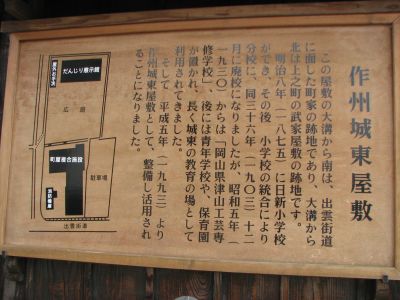 作州城東屋敷
この屋敷の大溝から南は、出雲街道
に面した町家の跡地であり、大溝から
北は上之町の武家屋敷の跡地です。
明治八年（一八七五）に日新小学校
ができ、その後、小学校の統合により
分校に、同三十六年（一九〇三）十二
月に廃校になりましたが、昭和五年（
一九三〇）からは「岡山県津山工芸専
修学校」、後には青年学校や、保育園
が置かれ、長く城東の教育の場として
利用されてきました。
そして、平成五年（一九九三）より
作州城東屋敷として、整備し活用され
ることになりました。
だんじり展示館
屋外お手洗
広庭
町屋複合施設
駐車場
消防機庫
出雲街道